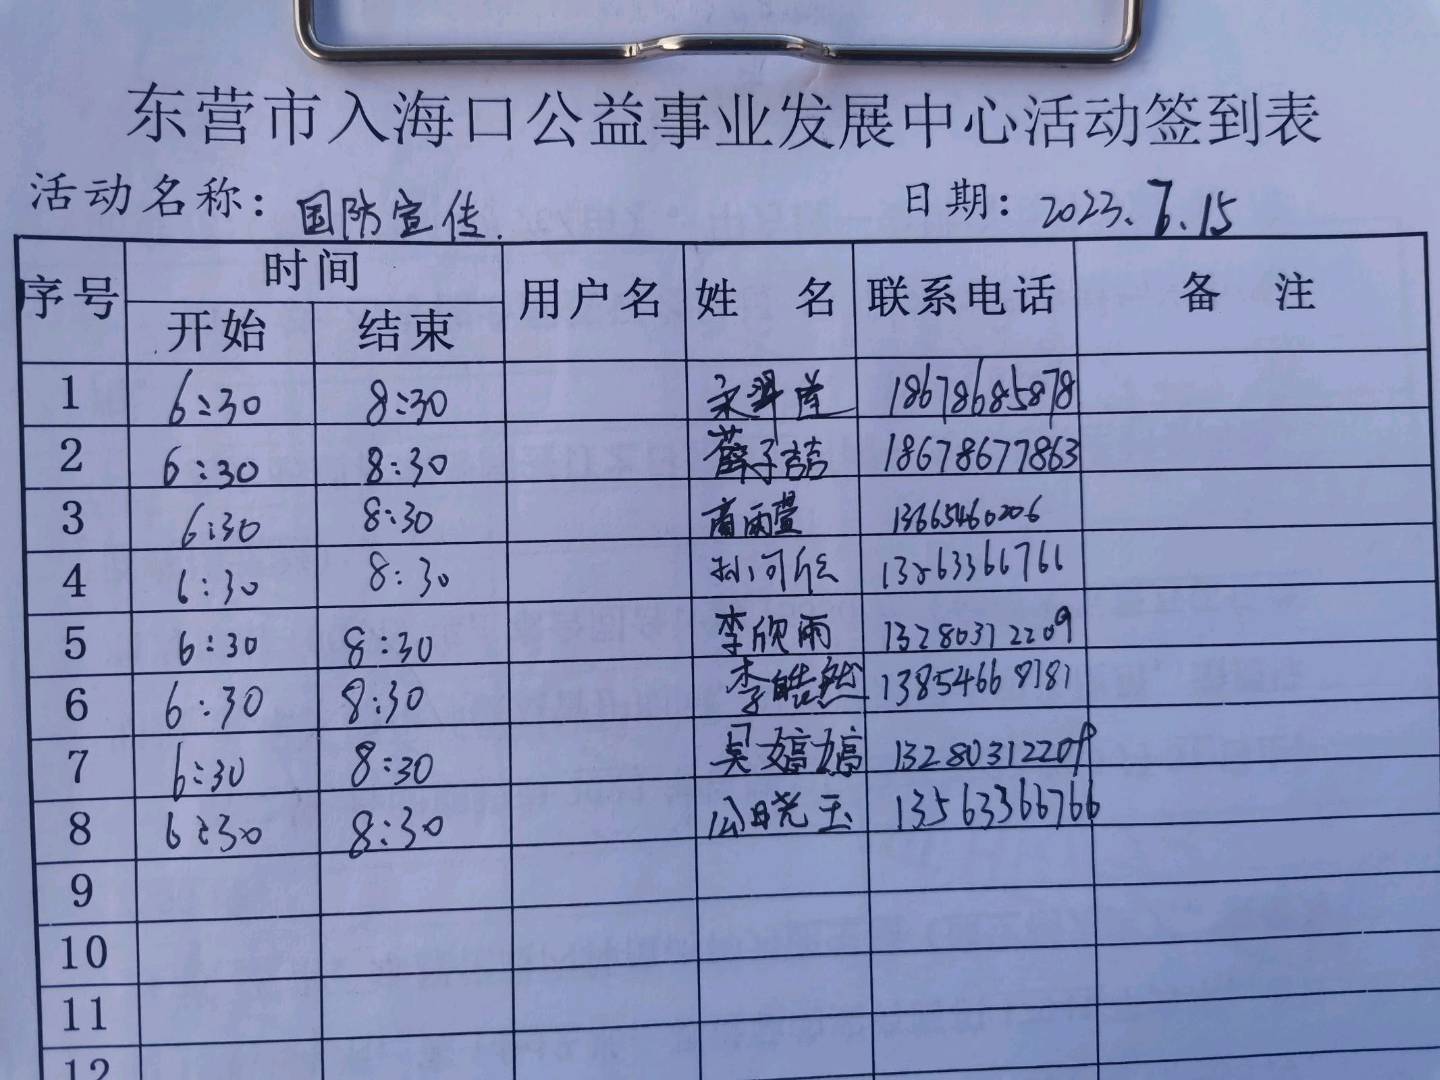 东营市入海口公益事业发展中心活动签到表
活动名称：国防宣传. 日期：2023.7.15
序号 时间 用户名 姓 名 联系电话 备 注
开始 结束
1 6:30 8:30 18678685878
2 6:30 8:30 薛子喆 18678677863
3 6:30 8:30 商雨萱 13665460206
4 6:30 8:30 孙可欣 13563366766
5 6:30 8:30 李欣雨 13280312209
6 6:30 8:30 李皓然 13854668181
7 6:30 8:30 吴婷婷 13280312209
8 6:30 8:30 公晓玉 13563366766
9
10
11
12